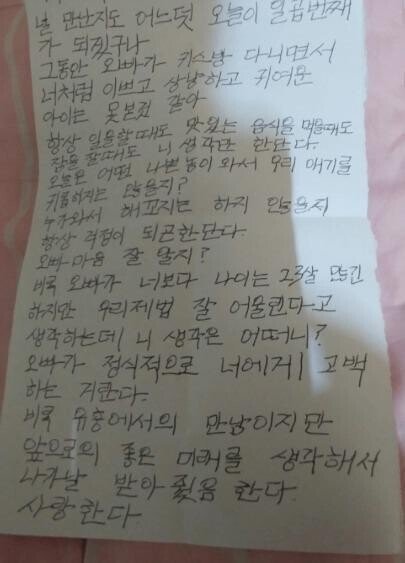 널 만난지도 어느덧 오늘이 일곱번째
가 되겠구나
그동안 오빠가 키스방 다니면서
너처럼 이쁘고 상냥하고 귀여운
아이는 못본것 같아
항상 일을할때도 맛있는 음식을 먹을때도
잠을 잘때도 니 생각만 한단다.
오늘은 어떤 나쁜놈이 와서 우리 애기를
괴롭히지는 않을지?
누가와서 해꼬지는 하지 않을지
항상 걱정이 되곤한단다.
오빠마음 잘 알지?
비록 오빠가 너보다 나이는 23살 많긴
하지만 우리제법 잘 어울린다고
생각하는데 니 생각은 어떠니?
오빠가 정식적으로 너에게 고백
하는 거란다.
비록 유흥에서의 만남이지만
앞으로의 좋은 미래를 생각해서
나가날 받아 줬음 한다.
사랑한다